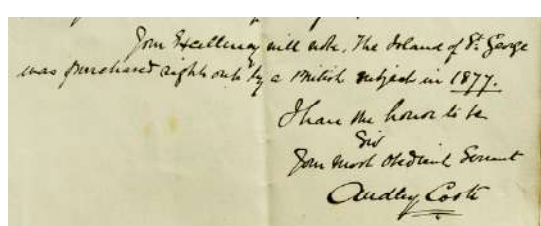 Your Excellency will note, The Island of St. George
was purchased right out by a British subject in 1877.
I have the honor to be
Sir
Your most obedient Servant
Audley Coote